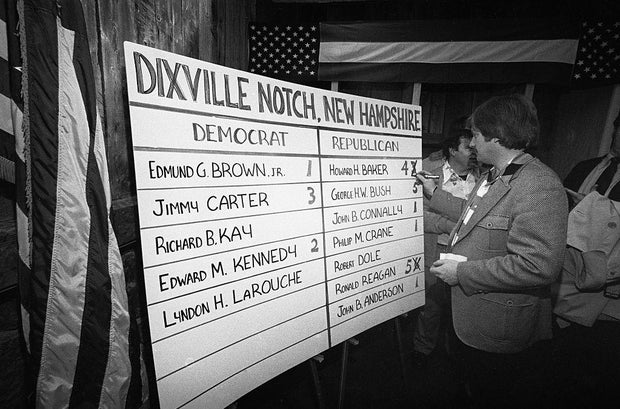 DIXVILLE NOTCH, NEW HAMPSHIRE
DEMOCRAT
EDMUND G. BROWN, JR. 1
JIMMY CARTER 3
RICHARD B. KAY
EDWARD M. KENNEDY 2
LYNDON H. LAROUCHE
REPUBLICAN
HOWARD H. BAKER 4
GEORGE H.W. BUSH 5
JOHN B. CONNALLY 1
PHILIP M. CRANE 1
ROBERT DOLE
RONALD REAGAN 5
JOHN B. ANDERSON 1